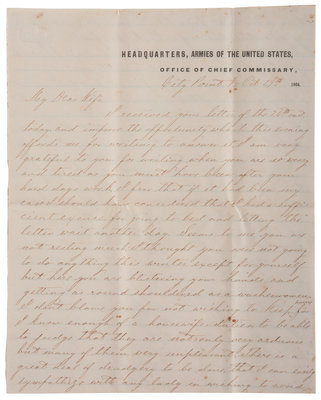 HEADQUARTERS, ARMIES OF THE UNITED STATES,
OFFICE OF CHIEF COMMISSARY,
City Point Va Oct 1864.
My Dear Wife
I received your letter of the inst
today and improve the opportunity which this evening
affords me for writing to answer it. I am very
grateful to you for writing when you are so weary
and tired as you must have been after your
hard days work. I fear that if it had been my
case I should have considered that I had a suffi-
cient excuse for going to bed and letting the
letter wait another day. Seems to me you are
not resting much. I thought you were not going
to do anything this winter except for yourself
but here you are blistering your hands and
getting as round shouldered as a washerwoman
I don't blame you for not wishing to keep house for
I know enough of a housewife duties to be able
to judge that they are not only very arduous
but many of them very unpleasant. There is a
great deal of drudgery to be done that I can easily
sympathize with any lady in wishing to avoid